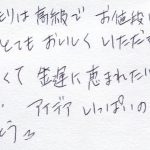 りは高級で お値段
とても おいしく いただ
くて 金運に 恵まれた
アイデア いっぱいの
う